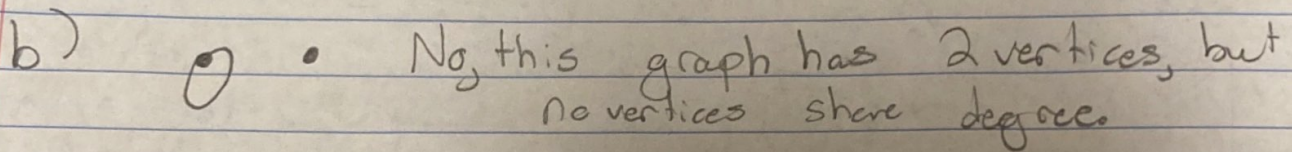 b) No, this graph has 2 vertices, but
no vertices share degree.